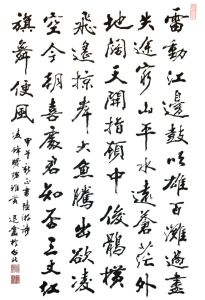 雷動江邊鼓吹雄百灘過盡
失途窮山平水遠蒼茫外
地闊天開指顧中俊鶻橫
飛遙掠岸大魚騰出欲凌
空今朝喜處君知否三丈紅
旗舞便風
甲午 書陸游詩